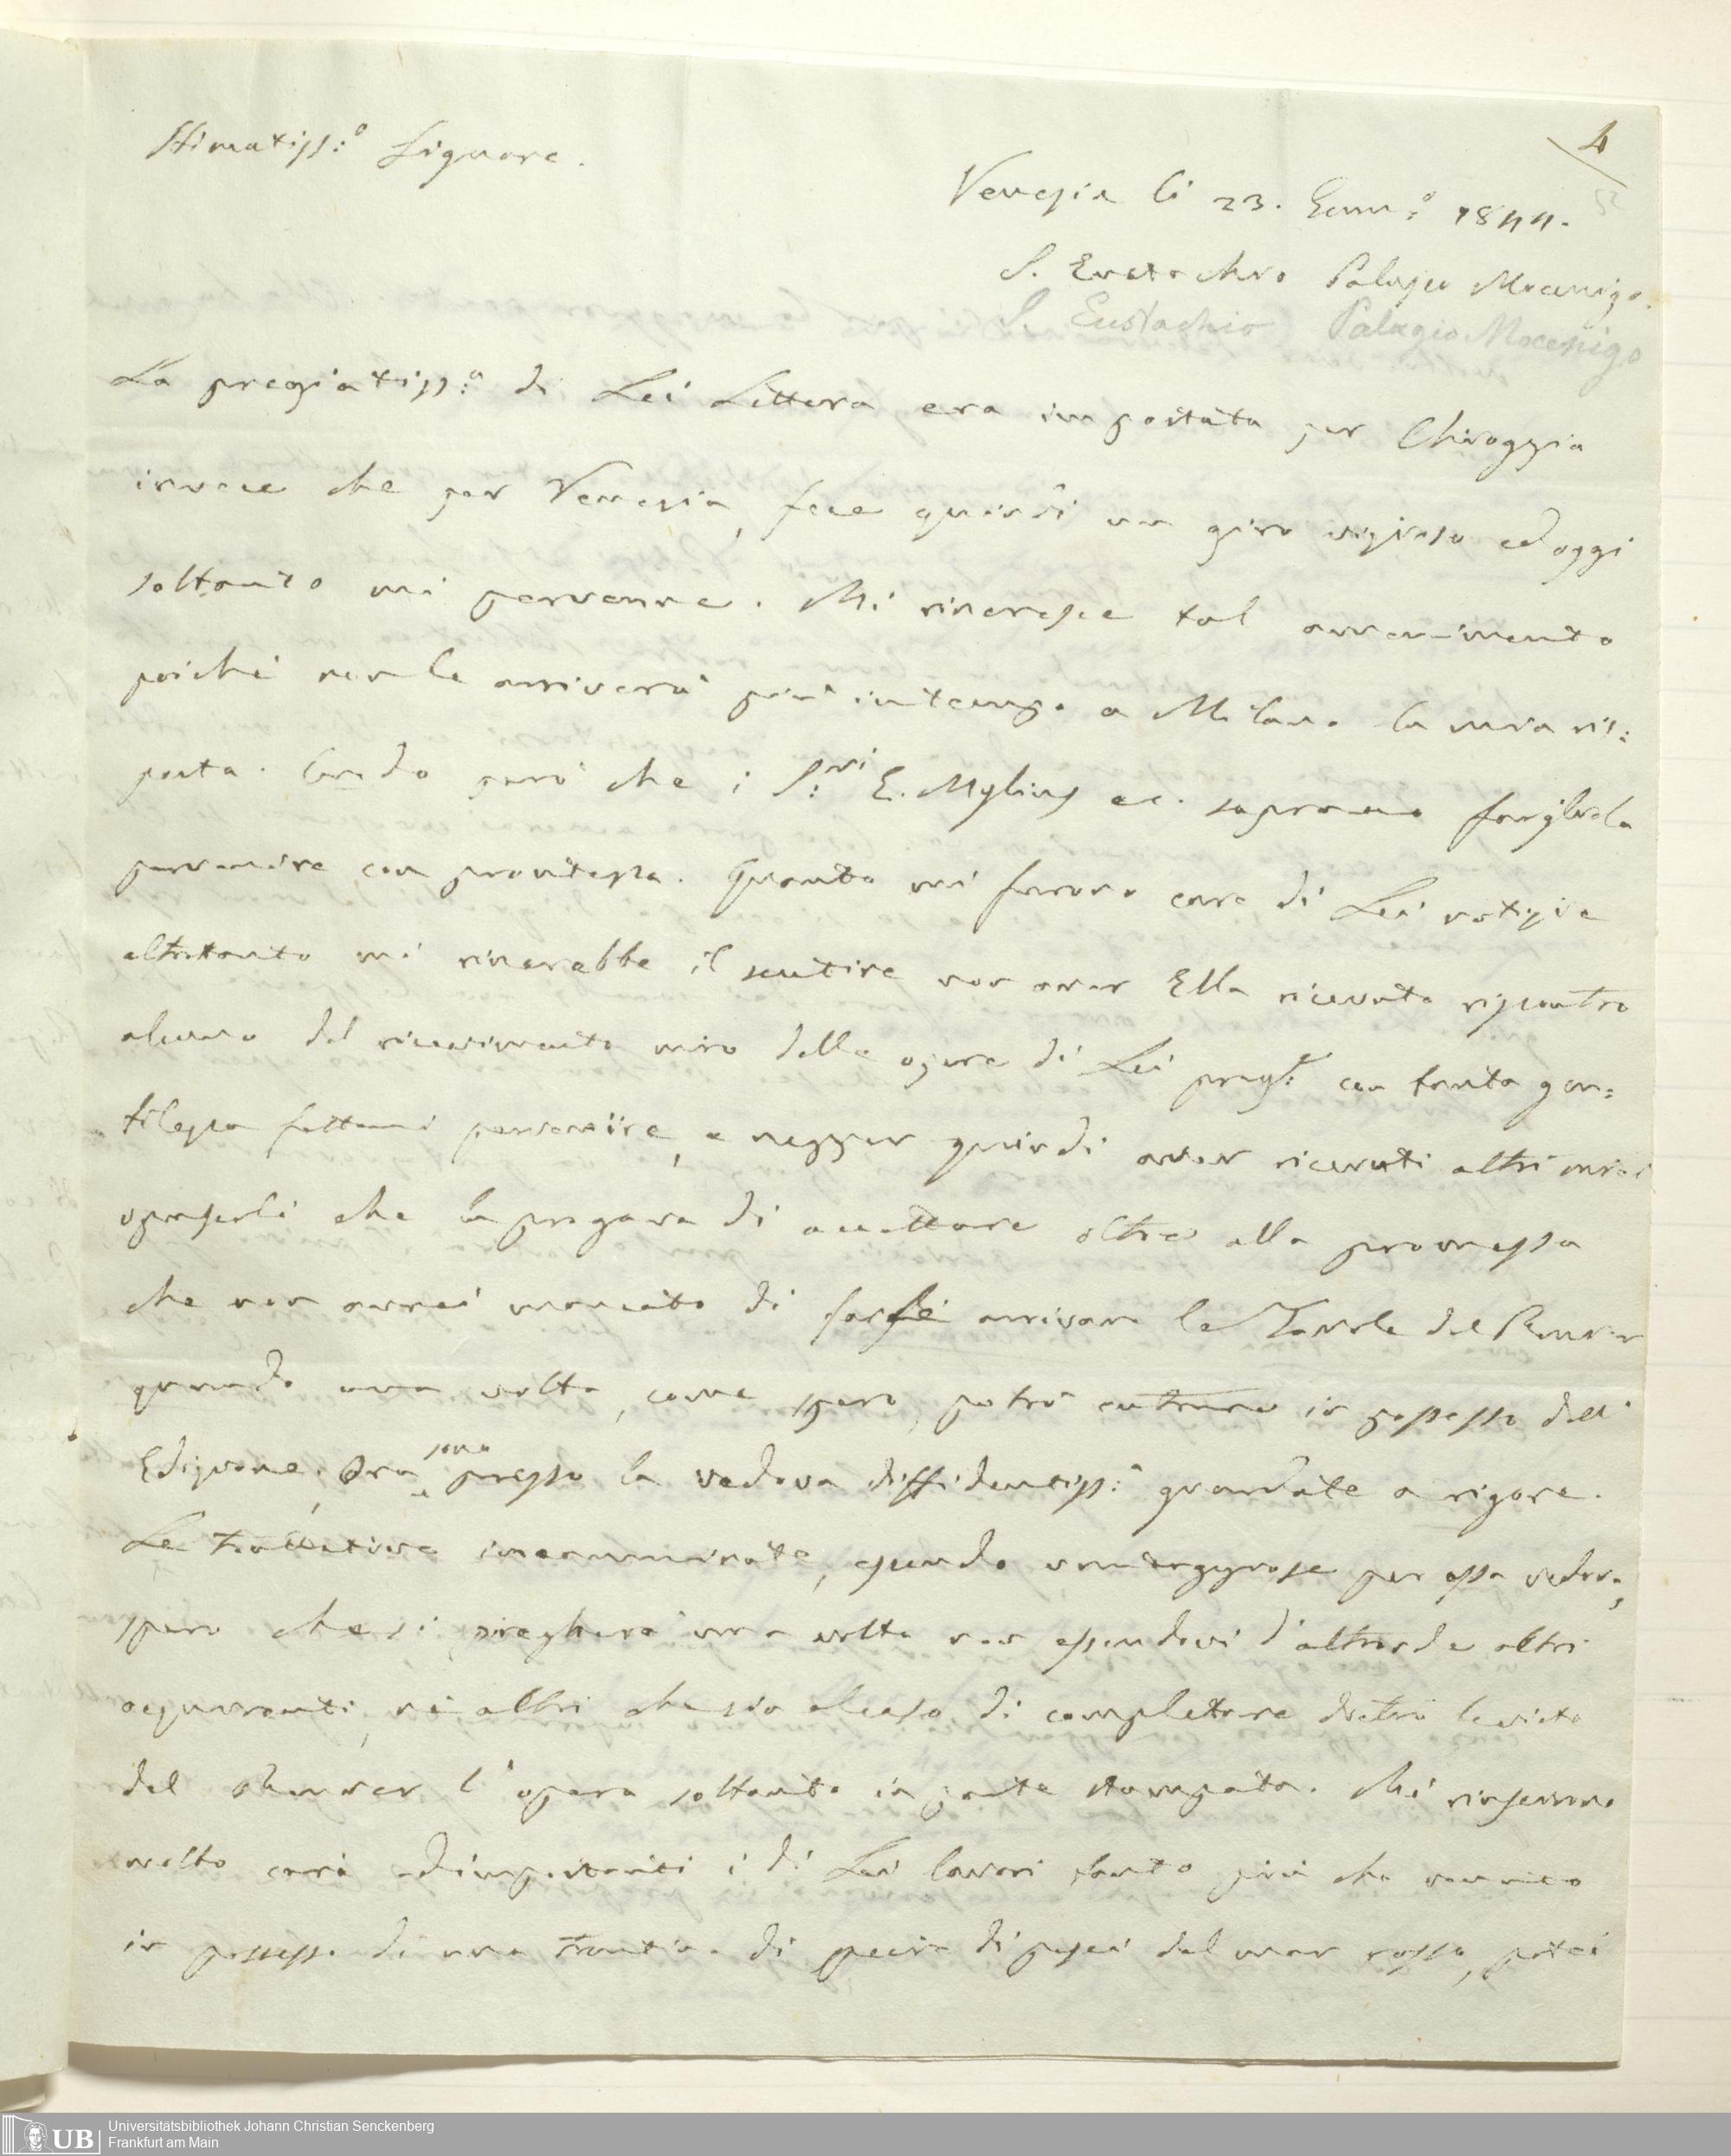 Stimatiss:o Signore.
4
52
Venezia li 23. Genn:o 1844.
S. Eustachio Palazzo Mocenigo.
S. Eustachio Palagio Mocenigo
La pregiatiss:a di Lei Lettera era impostata per Chioggia
invece che per Venezia, fece quindi un giro vizioso ed oggi
soltanto mi pervenne. Mi rincresce tal avvenimento
poichè non le arriverà più in tempo a Milano la mia ris:
posta. Credo però che i S:ri E. Mylius ec. sapranno fargliela
pervenire con prontezza. Quanto mi furono care di Lei notizie
altrettanto mi rincrebbe il sentire non aver Ella ricevuto riscontro
alcuno del ricevimento mio delle opere di Lei preg:e con tanta gen:
tilezza fattemi pervenire, e neppur quindi aver ricevuti altri miei
opuscoli che la pregava di accettare oltre alla promessa
che non avrei mancato di farle arrivare le Tavole del Renier
quando una volta, come spero, potrò entrare in possesso dell'
Edizione. Ora sono presso la vedova diffidentiss:a guardate a rigore.
Le trattative incamminate, essendo vantaggiose per essa vedova,
spero che si piegherà una volta non essendovi d'altronde altri
acquirenti, nè altri che sia al caso di completare dietro le viste
del Renier l'opera soltanto in parte stampata. Mi riusciranno
molto cari ed importanti i di Lei lavori tanto più che venuto
in possesso di una trentina di specie di pesci del mar rosso, potei
Universitätsbibliothek Johann Christian Senckenberg
Frankfurt am Main
UB